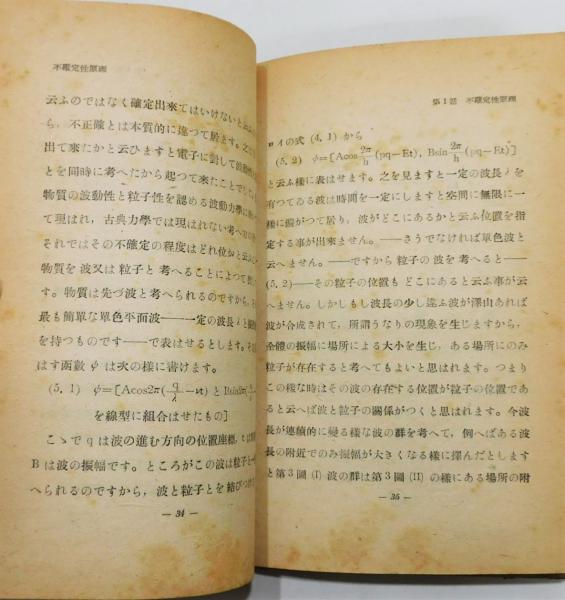 不確定性原理
云ふのではなく確定出來てはいけないと云ふ
ら，不正確とは本質的に違つて居ます。
出て來たかと云ひますと電子に對して波動
とを同時に考へたから起つて來たことで
物質の波動性と粒子性を認める波動力學に
て現はれ，古典力學では現はれない考へ
それではその不確定の程度はどれ位かと云
物質を波又は粒子と考へることによつて
す。物質は先づ波と考へられるのですから
最も簡單な單色平面波——一定の波長λと
を持つものです——で表はせるとします。
はす函數ψは次の様に書けます。
(5. 1) ϕ=[Acos2π(q/λ−νt) と Bsin2π(
を線型に組合はせたもの]
こゝで q は波の進む方向の位置座標，tは
B は波の振幅です。ところがこの波は粒子と
へられるのですから，波と粒子とを結びつ
— 34 —
第1話 不確定性原理
ロイの式 (4. 1) から
(5. 2) ϕ=[Acos2π/h(pq−Et), Bsin2π/h(pq−Et)]
と云ふ樣に表はせます。之を見ますと一定の波長λを
有つてゐる波は時間を一定にしますと空間に無限に一
樣に擴がつて居り，波がどこにあるかと云ふ位置を指
定する事が出來ません。——さうでなければ單色波と
云へません。——ですから粒子の波を考へると——
(5. 2)——その粒子の位置もどこにあると云ふ事が云
へません。しかしもし波長の少し違ふ波が澤山あれば
波が合成されて，所謂うなりの現象を生じますから，
全體の振幅に場所による大小を生じ，ある場所にのみ
粒子が存在すると考へてもよいと思はれます。つまり
この樣な時はその波の存在する位置が粒子の位置であ
ると云へば波と粒子の關係がつくと思はれます。今波
長が連續的に變る樣な波の群を考へて，例へばある波
長の附近でのみ振幅が大きくなる樣に擇んだとします
と第3圖 (I) 波の群は第3圖 (II) の樣にある場所の附
— 35 —